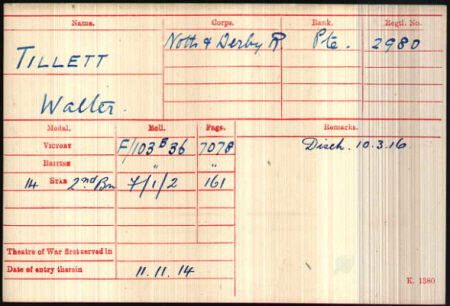 Name. Corps. Rank. Regtl. No.
TILLETT Notts & Derby R. Pte. 2980
Walter.
Medal. Roll. Page. Remarks.
VICTORY F/103 B 36 7078 Disch. 10.3.16
BRITISH " "
14 STAR 2nd Bn 7/1/2 161
Theatre of War first served in
Date of entry therein 11.11.14
K. 1380